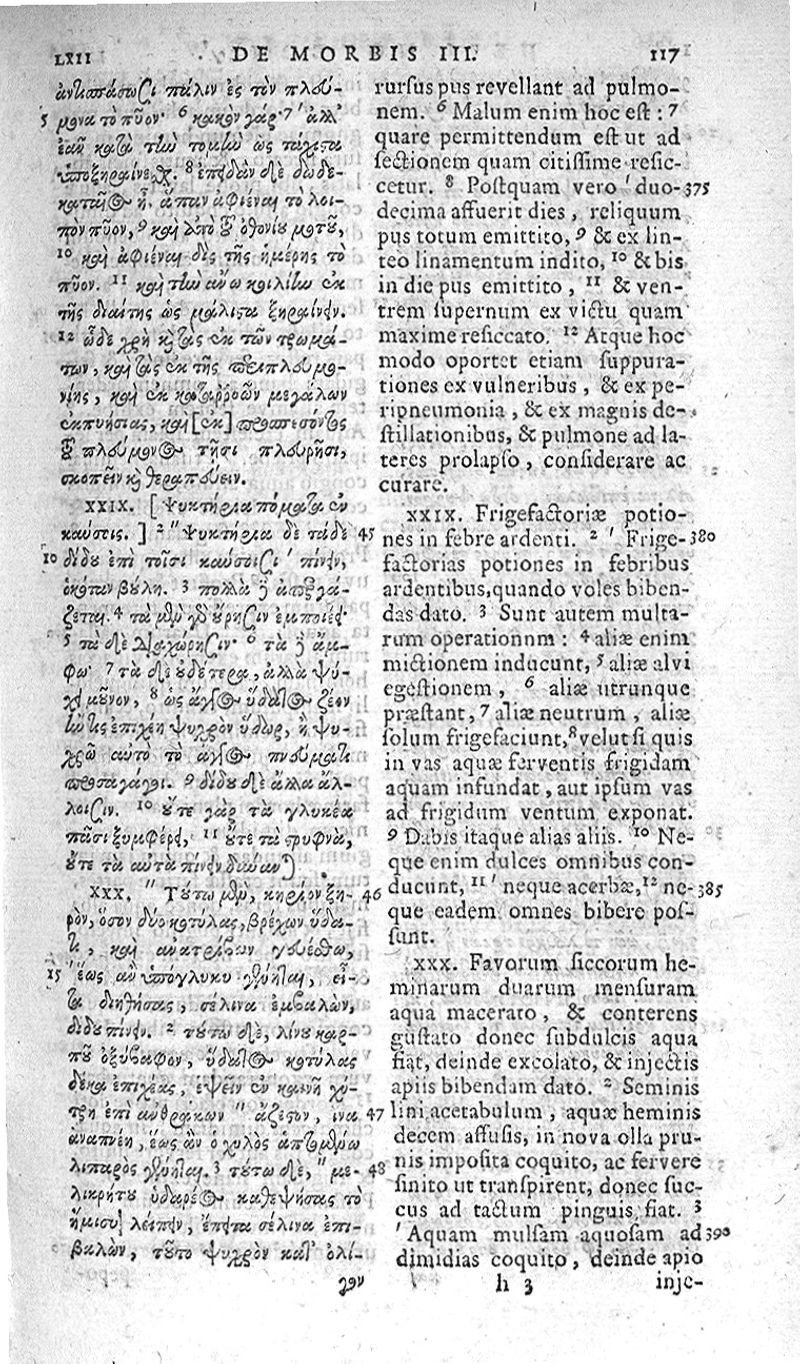 LXII DE MORBIS III. 117
ἀντισπάσωσι πάλιν ἐς τὸν πλού-
5 μονα τὸ πῦον· 6 κακὸν γάρ· 7 ' ἀλλ'
ἐᾶν κατὰ τὴν τομὴν ὡς τάχιστα
ὑποξηραίνεσθ. 8 ἐπὴν δὲ δωδε-
καταῖος ᾖ, ἅπαν ἀφιέναι τὸ λοι-
πὸν πῦον, 9 καὶ ἀπὸ τοῦ ὀθονίου μοτοῦν,
10 καὶ ἀφιέναι δὶς τῆς ἡμέρης τὸ
πῦον. 11 καὶ τὴν ἄνω κοιλίην ἐκ
τῆς διαίτης ὡς μάλιστα ξηραίνειν.
12 ὧδε χρὴ καὶ τὰς ἐκ τῶν τρωμά-
των, καὶ τὰς ἐκ τῆς περιπλουμο-
νίης, καὶ ἐκ καταῤῥοῶν μεγάλων
ἐκπυήσιας, καὶ [ἐκ] προσπεσόντος
τοῦ πλούμονος τῇσι πλευρῇσι,
σκοπεῖν καὶ θεραπεύειν.
XXIX. [Ψυκτήρια πόματα ἐν
καύσοις.] 2 " Ψυκτήρια δὲ τάδε 45
10 δίδου ἐπὶ τοῖσι καύσοισι ' πίνειν,
ὁκόταν βούλῃ. 3 πολλὰ δὲ ἀπεργά-
ζεται. 4 τὰ μὲν γὰρ οὔρησιν ἐμποιέει·
5 τὰ δὲ διαχώρησιν· 6 τὰ δὲ ἄμ-
φω· 7 τὰ δὲ οὐδέτερα, ἀλλὰ ψύ-
χει μοῦνον, 8 ὡς ἄγγος ὕδατος ζέον
ἤν τις ἐπιχέῃ ψυχρὸν ὕδωρ, ἢ ψυ-
χρῷ αὐτὸ τὸ ἄγγος πνεύματι
προσαγάγῃ. 9 δίδου δὲ ἄλλα ἄλ-
λοισιν. 10 οὔτε γὰρ τὰ γλυκέα
πᾶσι ξυμφέρει, 11 οὔτε τὰ στρυφνὰ,
οὔτε τὰ αὐτὰ πίνειν δύνανται.
XXX. " Τούτῳ μὲν, κηρίον ξη- 46
ρὸν, ὅσον δύο κοτύλας, βρέχων ὕδα-
τι, καὶ ἀνατρίβων γευέσθω,
15 ' ἕως ἂν ὑπόγλυκυ γένηται, εἶ-
τα διηθήσας, σέλινα ἐμβαλὼν,
δίδου πίνειν. 2 τούτῳ δὲ, λίνου καρ-
ποῦ ὀξύβαφον, ὕδατος κοτύλας
δέκα ἐπιχέας, ἕψειν ἐν καινῇ χύ-
τρῃ ἐπὶ ἀνθράκων " ἄζεσον, ἵνα 47
ἀναπνέῃ, ἕως ἂν ὁ χυλὸς ἁπτομένῳ
λιπαρὸς γένηται. 3 τούτῳ δὲ, " με- 48
λικρήτου ὑδαρέος καθεψήσας τὸ
ἥμισυ λείπειν, ἔπειτα σέλινα ἐπι-
βαλὼν, τοῦτο ψυχρὸν κατ' ὀλί-
γον
rursus pus revellant ad pulmo-
nem. 6 Malum enim hoc est : 7
quare permittendum est ut ad
sectionem quam citissime resic-
cetur. 8 Postquam vero ' duo- 375
decima affuerit dies, reliquum
pus totum emittito, 9 & ex lin-
teo linamentum indito, 10 & bis
in die pus emittito, 11 & ven-
trem supernum ex victu quam
maxime resiccato. 12 Atque hoc
modo oportet etiam suppura-
tiones ex vulneribus, & ex pe-
ripneumonia, & ex magnis de-
stillationibus, & pulmone ad la-
teres prolapso, considerare ac
curare.
XXIX. Frigefactoriæ potio-
nes in febre ardenti. 2 ' Frige- 380
factorias potiones in febribus
ardentibus, quando voles biben-
das dato. 3 Sunt autem multa-
rum operationnm : 4 aliæ enim
mictionem inducunt, 5 aliæ alvi
egestionem, 6 aliæ utrunque
præstant, 7 aliæ neutrum, aliæ
solum frigefaciunt, 8 velut si quis
in vas aquæ ferventis frigidam
aquam infundat, aut ipsum vas
ad frigidum ventum exponat.
9 Dabis itaque alias aliis. 10 Ne-
que enim dulces omnibus con-
ducunt, 11 ' neque acerbæ, 12 ne- 385
que eadem omnes bibere pos-
sunt.
XXX. Favorum siccorum he-
minarum duarum mensuram
aqua macerato, & conterens
gustato donec subdulcis aqua
fiat, deinde excolato, & injectis
apiis bibendam dato. 2 Seminis
lini acetabulum, aquæ heminis
decem affusis, in nova olla pru-
nis imposita coquito, ac fervere
sinito ut transpirent, donec suc-
cus ad tactum pinguis fiat. 3
' Aquam mulsam aquosam ad 390
dimidias coquito, deinde apio
h 3 inje-